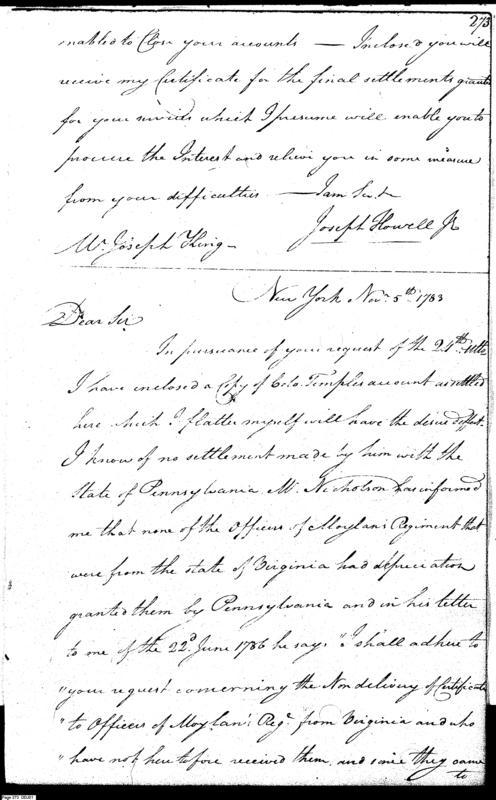 273
enabled to Close your accounts — Inclosed you will
receive my Certificate for the final settlements
for your which I presume will enable you to
procure the Interest and relieve you in some measure
from your difficulties — I am Sir &c
Joseph Howell Jr
Mr. Joseph King —
New York Novr. 5th. 1783
Dear Sir
In pursuance of your request of the 24th. Ulto
I have inclosed a Copy of Colo. Temples account as settled
here which I flatter myself will have the desired effect.
I know of no settlement made by him with the
State of Pennsylvania. Mr. Nicholson has informed
me that none of the Officers of Moylan's Regiment that
were from the state of Virginia had depreciation
granted them by Pennsylvania and in his letter
to me of the 22d. June 1786 he says "I shall adhere to
"your request concerning the Non delivery of Certificates
"to Officers of Moylan's Regt. from Virginia and who
"have not heretofore received them, and since they came
to
Page 273 DEU01